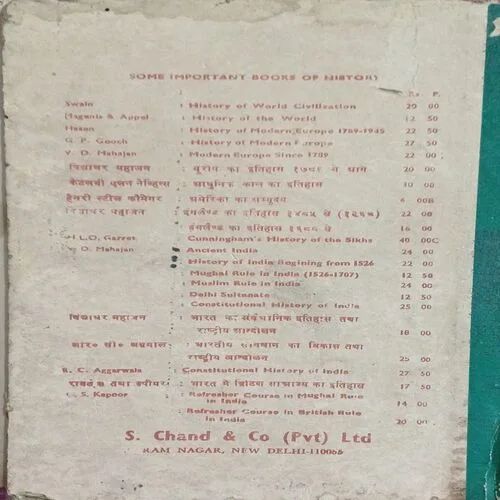 SOME IMPORTANT BOOKS OF HISTORY
Rs P.
Swain : History of World Civilization 20 00
Magenis & Appel : History of the World 12 50
Hazen : History of Modern Europe 1789-1945 22 50
G. P. Gooch : History of Modern Europe 27 50
V. D. Mahajan : Modern Europe Since 1789 22 00
विद्याधर महाजन : यूरोप का इतिहास १७८९ से 20 00
: आधुनिक काल का इतिहास 10 00
हेनरी स्टील कौमेगर : अमेरिका का अभ्युदय 6 00B
विद्याधर महाजन : इंगलैण्ड का इतिहास १४८५ से 22 00
इंगलैण्ड का इतिहास १६८८ से 16 00
H L.O. Garret : Cunningham's History of the Sikhs 40 00C
V. D. Mahajan : Ancient India 24 00
: History of India Begining from 1526 22 00
: Mughal Rule in India (1526-1707) 12 50
: Muslim Rule in India 24 00
: Delhi Sultanate 12 50
: Constitutional History of India 25 00
विद्याधर महाजन : भारत का संवैधानिक इतिहास तथा
राष्ट्रीय आन्दोलन 18 00
आर० सी० अग्रवाल : भारतीय संविधान का विकास तथा
राष्ट्रीय आन्दोलन 25 00
R. C. Aggarwala : Constitutional History of India 27 50
तथा स्पीयर : भारत में ब्रिटिश साम्राज्य का इतिहास 17 50
S. Kapoor : Refresher Course in Mughal Rule
in India 14 00
: Refresher Course in British Rule
in India 20 00
S. Chand & Co (Pvt) Ltd
RAM NAGAR, NEW DELHI-110055